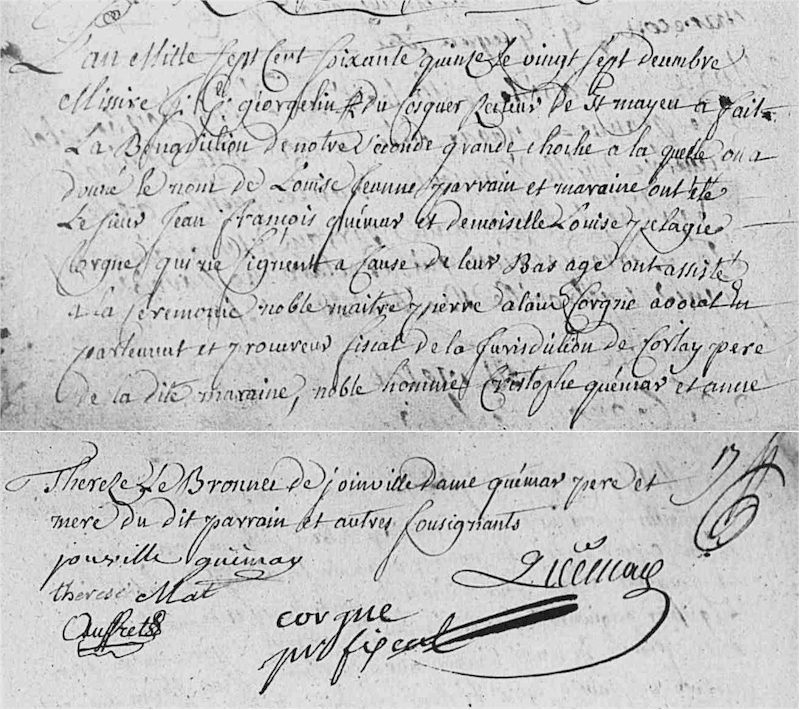 L'an Mille Sept Cent Soixante quinze le vingt sept decembre
Missire georgelin du Cosquer Recteur de St mayeu a fait
La Benediction de notre Seconde grande Cloche a la quelle on a
donné le nom de Louise Jeanne, parrain et maraine ont été
Le sieur Jean François quémar et demoiselle Louise pelagie
Corgne, qui ne Signent a Cause de leur Bas age ont assisté
a la Ceremonie noble maitre pierre alain Corgne avocat en
parlement et procureur fiscal de la Jurisdiction de Corlay pere
de la dite maraine, noble homme Cristophe quémar et anne
Thereze Le Bronnec de joinville dame quémar pere et
mere du dit parrain et autres Sousignants
jonville quémar
Quémar
therese Mat
Auffret
corgne
pr fiscal